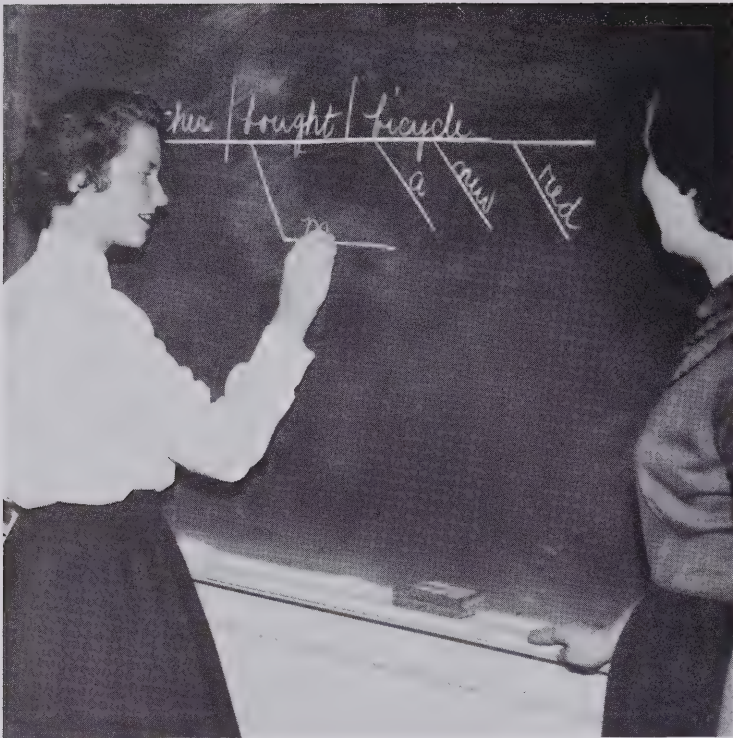 her | bought | bicycle
a new red